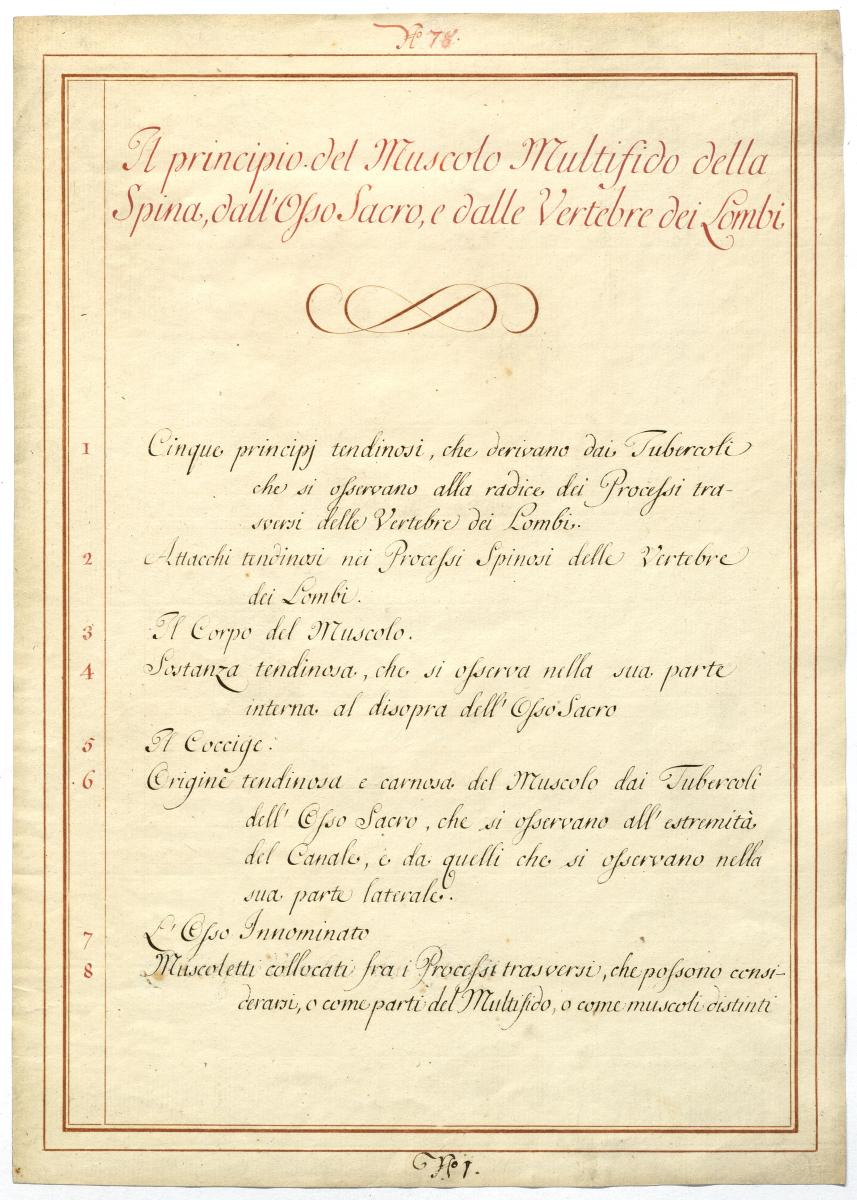 Nº 78.
Il principio del Muscolo Multifido della
Spina, dall'Osso Sacro, e dalle Vertebre dei Lombi
1 Cinque principj tendinosi, che derivano dai Tubercoli
che si osservano alla radice dei Processi tra-
sversi delle Vertebre dei Lombi.
2 Attacchi tendinosi nei Processi Spinosi delle Vertebre
dei Lombi.
3 Il Corpo del Muscolo.
4 Sostanza tendinosa, che si osserva nella sua parte
interna al disopra dell'Osso Sacro
5 Il Coccige.
6 Origine tendinosa e carnosa del Muscolo dai Tubercoli
dell'Osso Sacro, che si osservano all'estremità
del Canale, e da quelli che si osservano nella
sua parte laterale.
7 L'Osso Innominato
8 Muscoletti collocati fra i Processi trasversi, che possono consi-
derarsi, o come parti del Multifido, o come muscoli distinti
Nº 1.